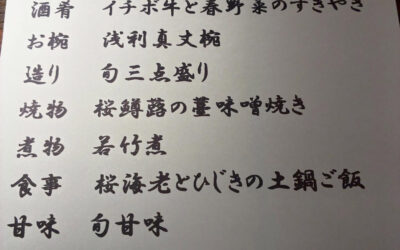 酒肴 イチボ牛と春野菜のすきやき
お椀 浅利真丈椀
造り 旬三点盛り
焼物 桜鱒蕗の薹味噌焼き
煮物 若竹煮
食事 桜海老とひじきの土鍋ご飯
甘味 旬甘味